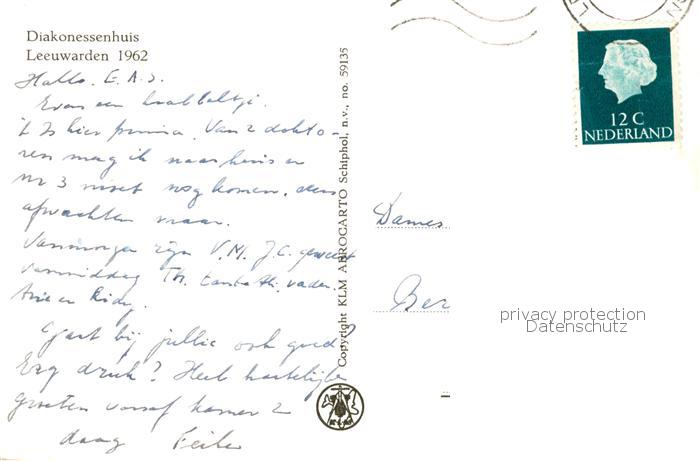 Diakonessenhuis
Leeuwarden 1962
Hallo. E. A. J.
Even een krabbeltje.
't Is hier prima. Van 2 dokto-
ren mag ik naar huis en
nr 3 moet nog komen. dus
afwachten maar.
Vanmorgen zijn V.M. J.C. geweest
vanmiddag Th. tante vader.
en
Gaat bij jullie ook goed?
Erg druk? Heel hartelijke
groeten vanaf kamer 2
daag
Copyright KLM AEROCARTO Schiphol, n.v., no. 59135
KLM
12 C
NEDERLAND
Dames
Ber
privacy protection
Datenschutz